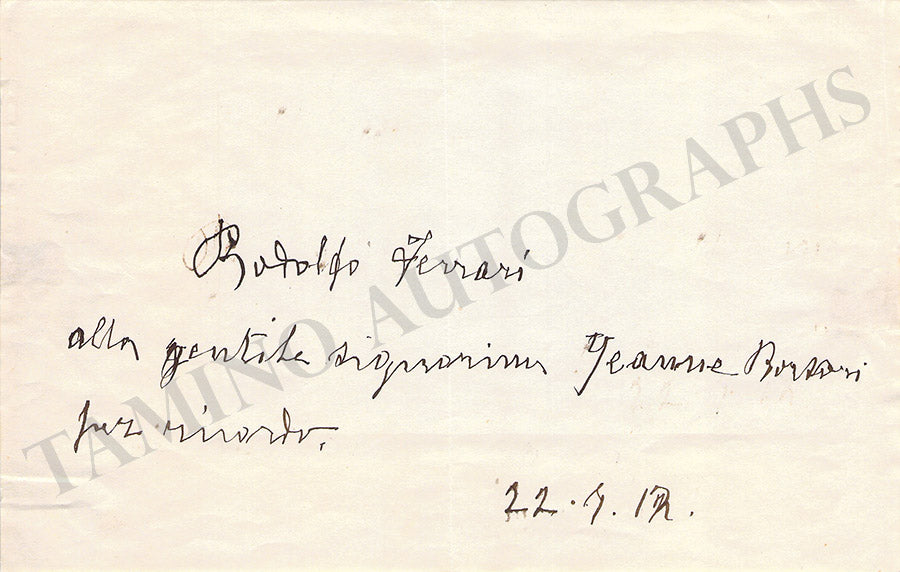 Rodolfo Ferrari
alla gentile signorina Jeanne
per ricordo.
22.
TAMINO AUTOGRAPHS